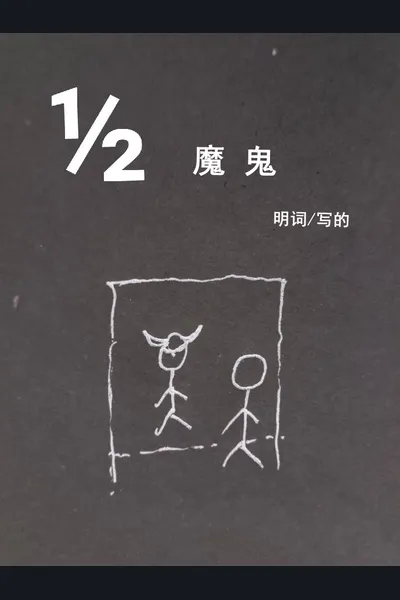 ½
魔鬼
明词/写的